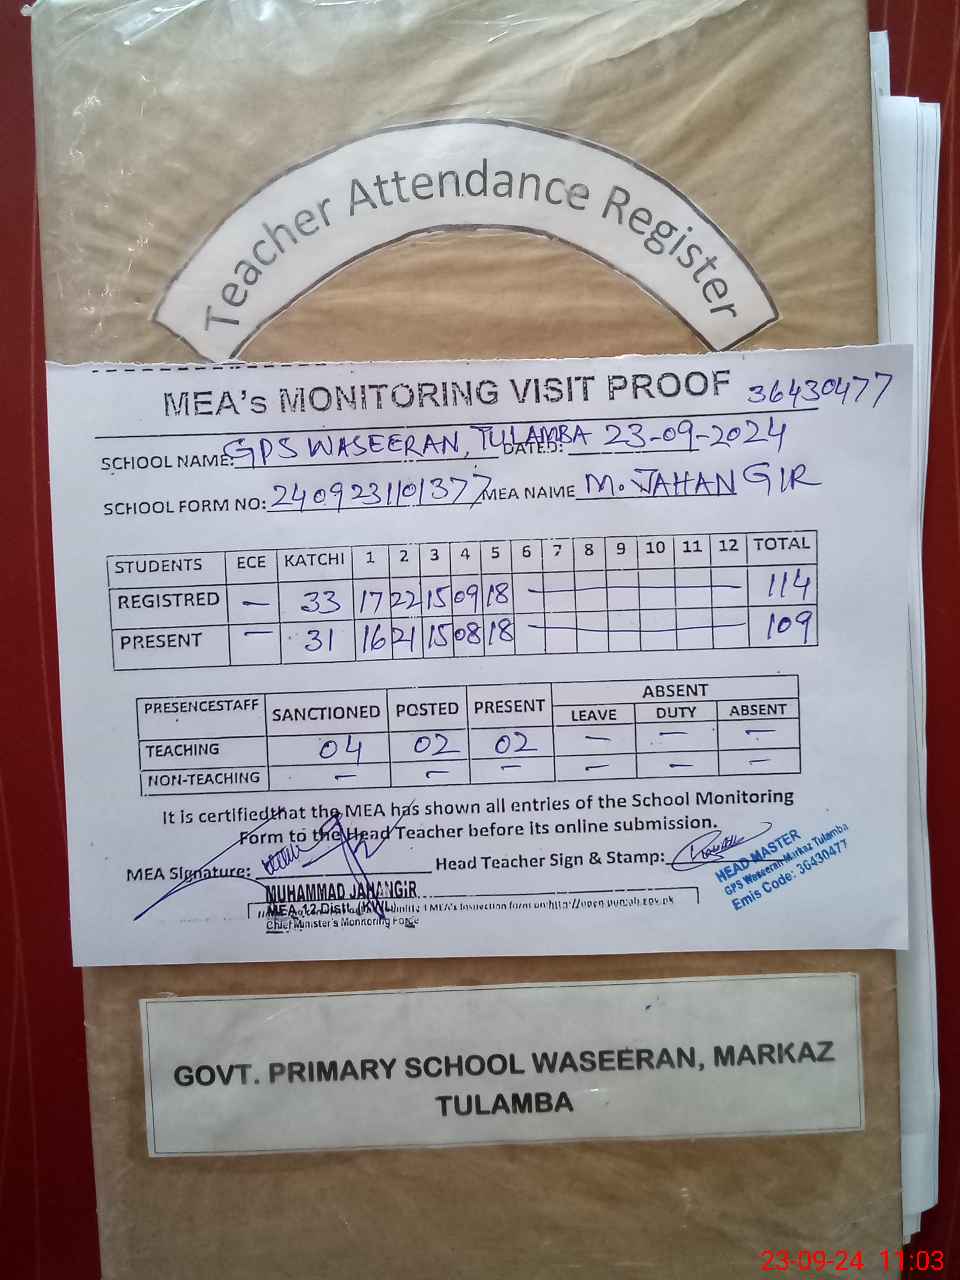 Teacher Attendance Register
MEA's MONITORING VISIT PROOF 36430477
SCHOOL NAME: GPS WASEERAN, TULAMBA DATED: 23-09-2024
SCHOOL FORM NO: 2409231101377 MEA NAME M. JAHANGIR
STUDENTS ECE KATCHI 1 2 3 4 5 6 7 8 9 10 11 12 TOTAL
REGISTRED — 33 17 22 15 09 18 — 114
PRESENT — 31 16 21 15 08 18 — 109
PRESENCESTAFF SANCTIONED POSTED PRESENT ABSENT
LEAVE DUTY ABSENT
TEACHING 04 02 02 — — —
NON-TEACHING — — — — — —
It is certifiedthat the MEA has shown all entries of the School Monitoring
Form to the Head Teacher before its online submission.
MEA Signature: Head Teacher Sign & Stamp:
HEAD MASTER
GPS Waseeran Markaz Tulamba
Emis Code: 36430477
MUHAMMAD JAHANGIR
MEA-12 Distt. (KWL)
MEA's Inspection form on http://open.punjab.gov.pk
Chief Minister's Monitoring Force
GOVT. PRIMARY SCHOOL WASEERAN, MARKAZ
TULAMBA
23-09-24 11:03